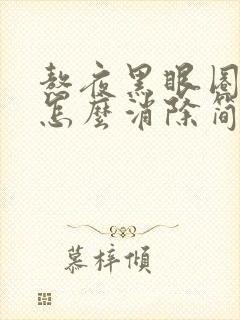 熬夜黑眼圈
怎麼消除简
慕梓傾